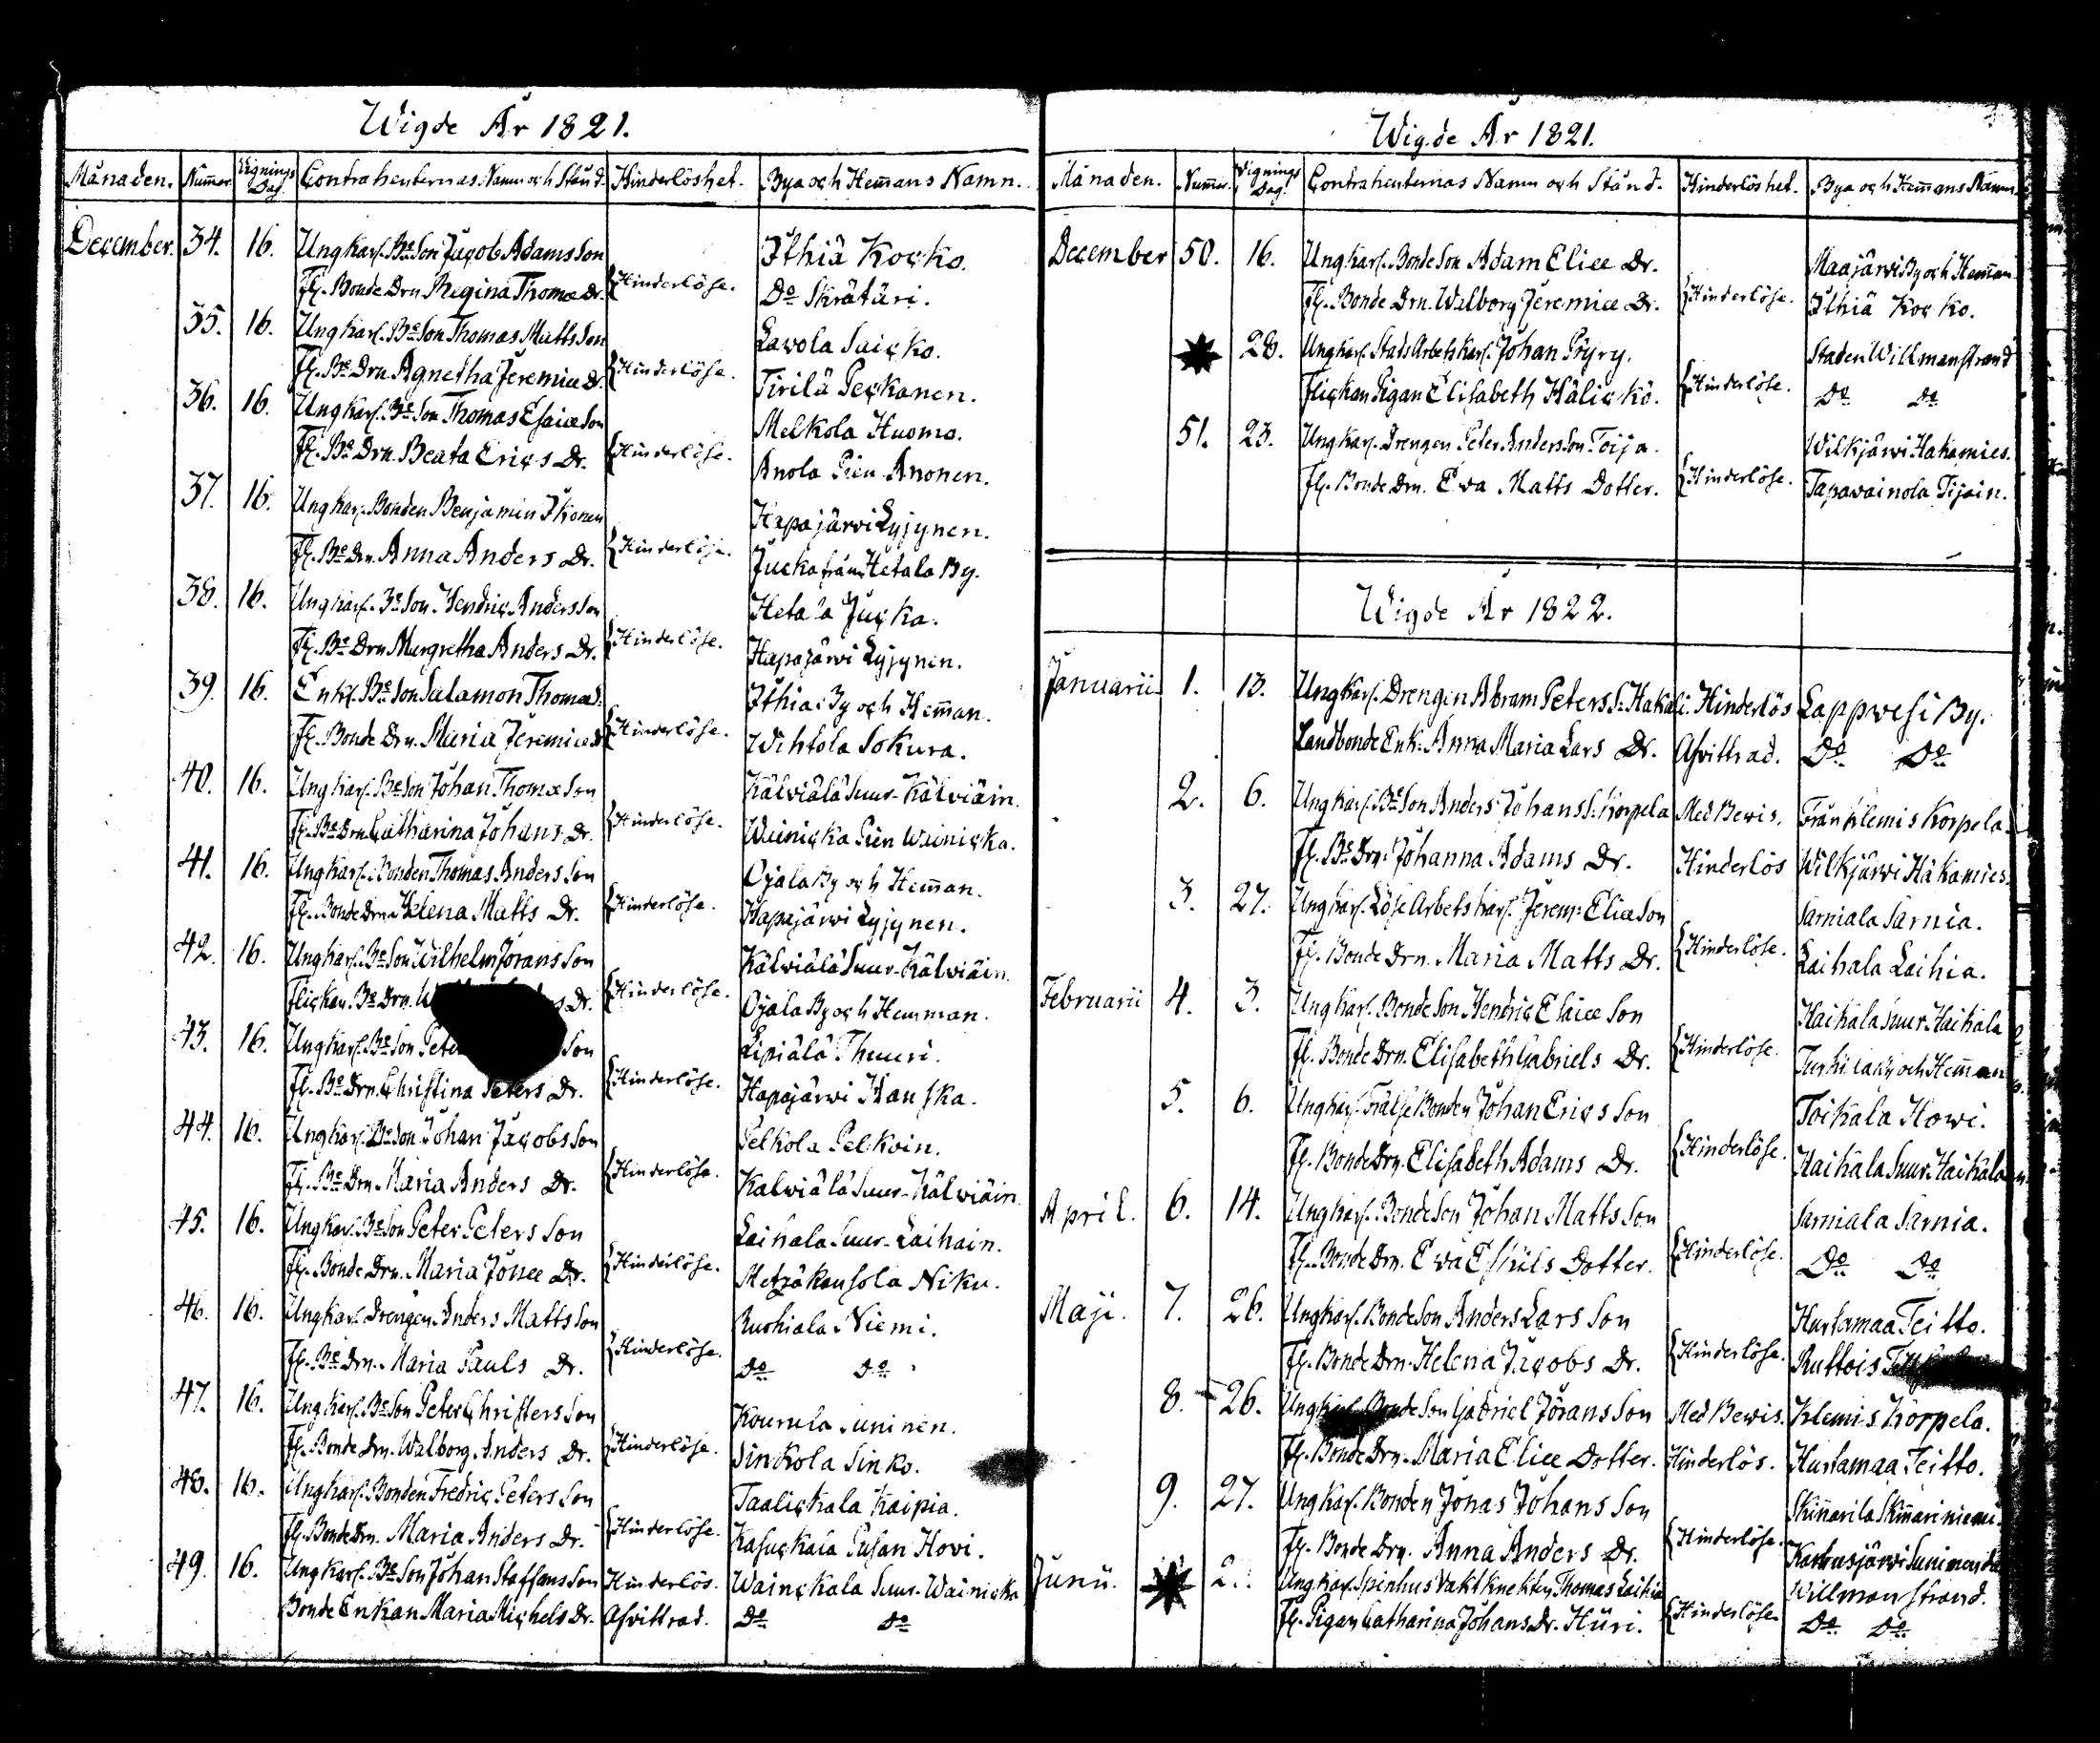 Wigde År 1821.
Månaden. Nummer. Vignings Dag. Contrahenternas Namn och Stånd. Hinderlöshet. Bya och Hemans Namn.
December. 34. 16. Ungkarl. Be Son Jacob Adams Son {Hinderlöse. Ithiä Kocko.
Fl. Bonde Drn Regina Thomæ Dr. Do Skrätäri.
35. 16. Ungkarl. Be Son Thomas Matts Son {Hinderlöse. Lavola Saicko.
Fl. Be Drn Agnetha Jeremiæ Dr. Tirilä Peckanen.
36. 16. Ungkarl. Be Son Thomas Esaiæ Son {Hinderlöse. Melkola Huomo.
Fl. Be Drn. Beata Erics Dr. Anola Pien Anonen.
37. 16. Ungkarl. Bonden Benjamin Ikonen {Hinderlöse. Hapajärvi Lyjynen.
Fl. Be Drn. Anna Anders Dr. Jucka från Hetala By.
38. 16. Ungkarl. Be Son Hendric Anders Son {Hinderlöse. Hetala Jucka.
Fl. Be Drn Margretha Anders Dr. Hapajärvi Lyjynen.
39. 16. Enkl. Be Son Salamon Thomæ S. {Hinderlöse. Ithia By och Heman.
Fl. Bonde Drn. Maria Jeremiæ Dr Wihtola Sokura.
40. 16. Ungkarl. Be Son Johan Thomæ Son {Hinderlöse. Kälviälä Suur-Kälviäin.
Fl. Be Drn Catharina Johans Dr. Wainicka Pien Wainicka.
41. 16. Ungkarl. Bonden Thomas Anders Son {Hinderlöse. Ojala By och Heman.
Fl. Bonde Drn Helena Matts Dr. Hapajärvi Lyjynen.
42. 16. Ungkarl. Be Son Wilhelm Jörans Son {Hinderlöse. Kälviälä Suur-Kälviäin.
Flickan. Be Drn. Dr. Ojala By och Hemman.
43. 16. Ungkarl. Be Son Son {Hinderlöse. Lipiälä Thuuri.
Fl. Be Drn. Christina Peters Dr. Hapajärvi Hanska.
44. 16. Ungkarl. Be Son Johan Jacobs Son {Hinderlöse. Pelkola Pelkoin.
Fl. Be Drn. Maria Anders Dr. Kalviälä Suur-Kälviäin
45. 16. Ungkarl. Be Son Peter Peters Son {Hinderlöse. Laihala Suur-Laihain.
Fl. Bonde Drn. Maria Jonæ Dr. Metzäkansola Niku.
46. 16. Ungkarl. Drengen Anders Matts Son {Hinderlöse. Ruohiala Niemi.
Fl. Be Drn. Maria Pauls Dr. Do Do
47. 16. Ungkarl. Be Son Peter Christers Son {Hinderlöse. Kourula Suninen.
Fl. Bonde Drn. Walborg Anders Dr. Sinkola Sinko.
48. 16. Ungkarl. Bonden Fredric Peters Son {Hinderlöse. Taalickala Kaipia.
Fl. Bonde Drn. Maria Anders Dr. Kasuckala Pusan Hovi.
49. 16. Ungkarl. Be Son Johan Staffans Son Hinderlös. Wainckala Suur-Wainicka
Bonde Enkan Maria Michels Dr. Afvittrad. Do Do
Wigde År 1821.
Månaden. Nummer. Vignings Dag. Contrahenternas Namn och Stånd. Hinderlöshet. Bya och Hemans Namn.
December 50. 16. Ungkarl. Bonde Son Adam Eliæ Dr. {Hinderlöse. Maajärvi By och Heman.
Fl. Bonde Drn. Walborg Jeremiæ Dr. Ithiä Kocko.
28. Ungkarl. Stads Arbets Karl. Johan Pöyry. {Hinderlöse. Staden Willmanstrand
Flickan Pigan Elisabeth Hälickö. Do Do
51. 23. Ungkarl. Drengen Peter Anders Son Toija. {Hinderlöse. Wilkjärvi Hakamies.
Fl. Bonde Drn. Eva Matts Dotter. Tapavainola Tijain.
Wigde År 1822.
Januarii. 1. 13. Ungkarl. Drengen Abram Peters S. Hakali. Hinderlös Lappvesi By.
Landbonde Enk. Anna Maria Lars Dr. Afvittrad. Do Do
2. 6. Ungkarl. Be Son Anders Johans S. Korpela Med Bevis. Från Klemis Korpela.
Fl. Be Drn. Johanna Adams Dr. Hinderlös Wilkjärvi Hakamies.
3. 27. Ungkarl. Löse Arbets Karl. Jerem: Eliæ Son {Hinderlöse. Sarniala Sarnia.
Fl. Bonde Drn. Maria Matts Dr. Laihala Laihia.
Februarii 4. 3. Ungkarl. Bonde Son Hendric Esaiæ Son {Hinderlöse. Haikala Suur-Haikala
Fl. Bonde Drn. Elisabeth Gabriels Dr. By och Heman
5. 6. Ungkarl. Frälse Bonden Johan Erics Son {Hinderlöse. Toikala Howi.
Fl. Bonde Drn. Elisabeth Adams Dr. Haikala Suur-Haikala
April. 6. 14. Ungkarl. Bonde Son Johan Matts Son {Hinderlöse. Sarniala Sarnia.
Fl. Bonde Drn. Eva Eskils Dotter. Do Do
Maji. 7. 26. Ungkarl. Bonde Son Anders Lars Son {Hinderlöse. Hurtamaa Teitto.
Fl. Bonde Drn. Helena Jacobs Dr. Ruttois
8. 26. Ungkarl. Bonde Son Gabriel Jörans Son Med Bevis. Klemis Korpela.
Fl. Bonde Drn. Maria Eliæ Dotter. Hinderlös. Hurtamaa Teitto.
9. 27. Ungkarl. Bonden Jonas Johans Son {Hinderlöse. Skinnarila Skinnariniemi.
Fl. Bonde Drn. Anna Anders Dr. Karhusjärvi
Junii. 2. Ungkarl. Spinhus Vakt Knekten Thomas Laihia {Hinderlöse. Willmanstrand.
Fl. Pigan Catharina Johans Dr. Hüri. Do Do